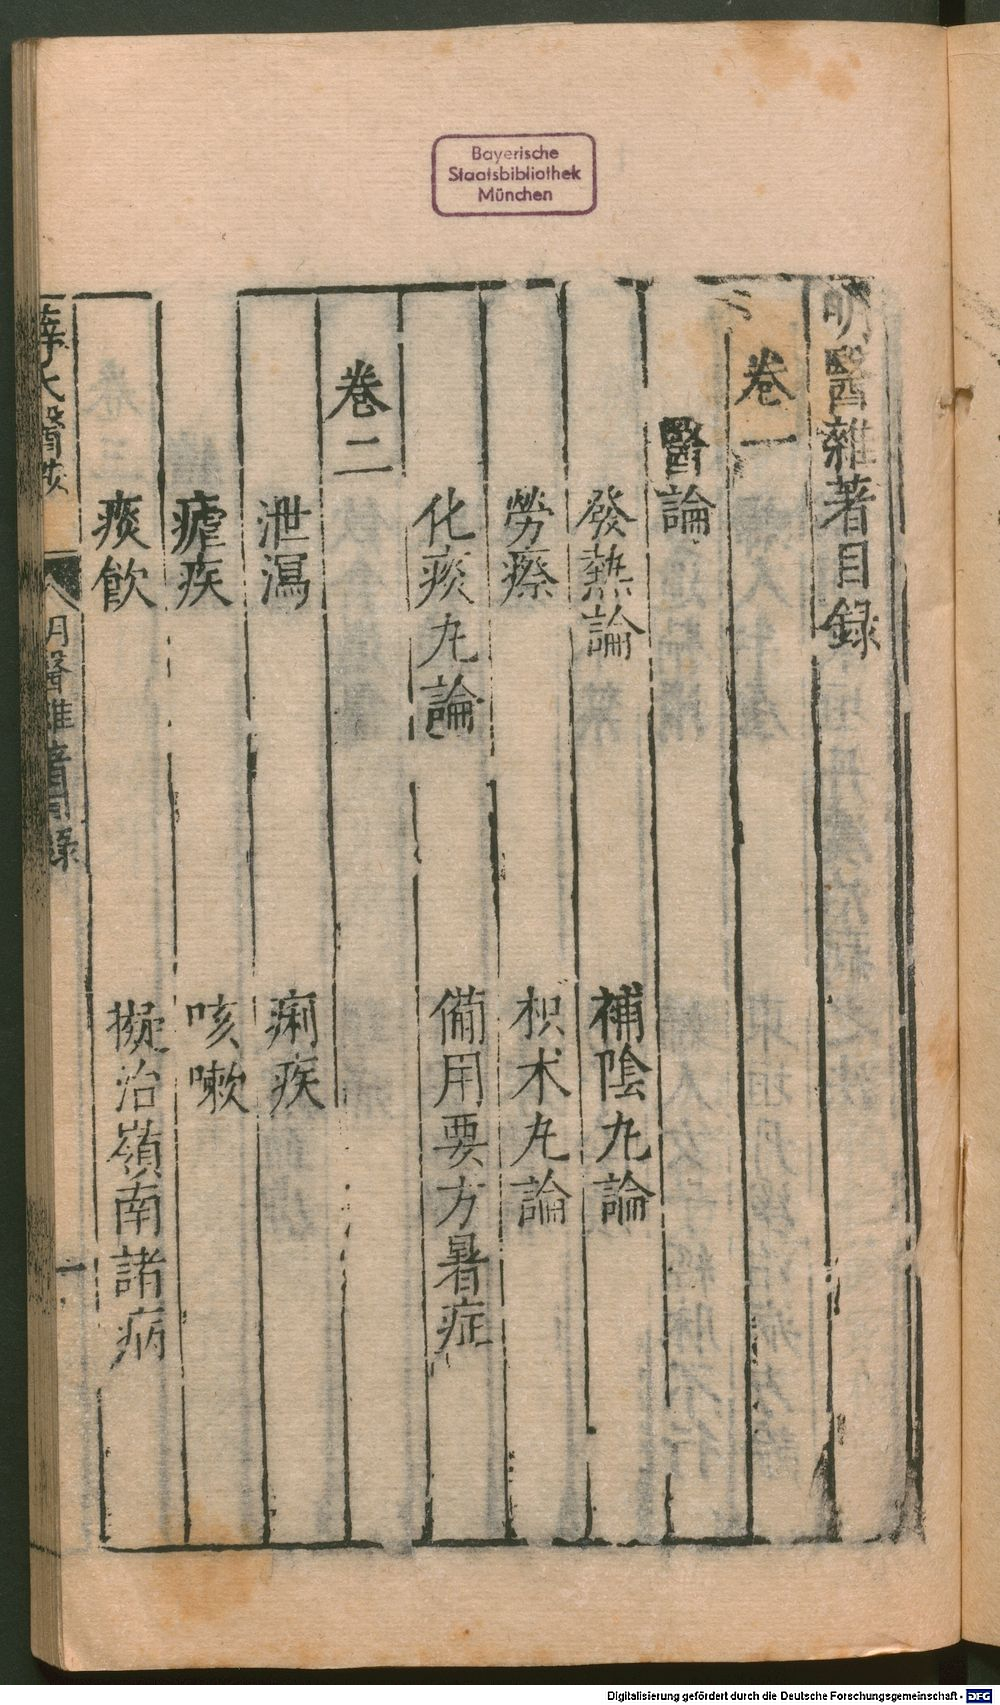 Bayerische
Staatsbibliothek
München
明醫雜著目録
卷一
醫論
發熱論
補陰丸論
勞瘵
枳术丸論
化痰丸論
備用要方暑症
卷二
泄瀉
痢疾
瘧疾
咳嗽
痰飲
擬治嶺南諸病
明醫雜著目錄
一
Digitalisierung gefördert durch die Deutsche Forschungsgemeinschaft - DFG